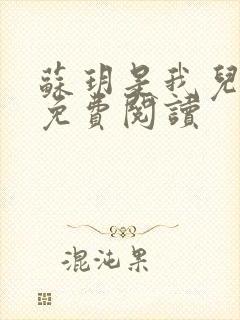 蘇玥是我兒
免費閱讀
混沌果